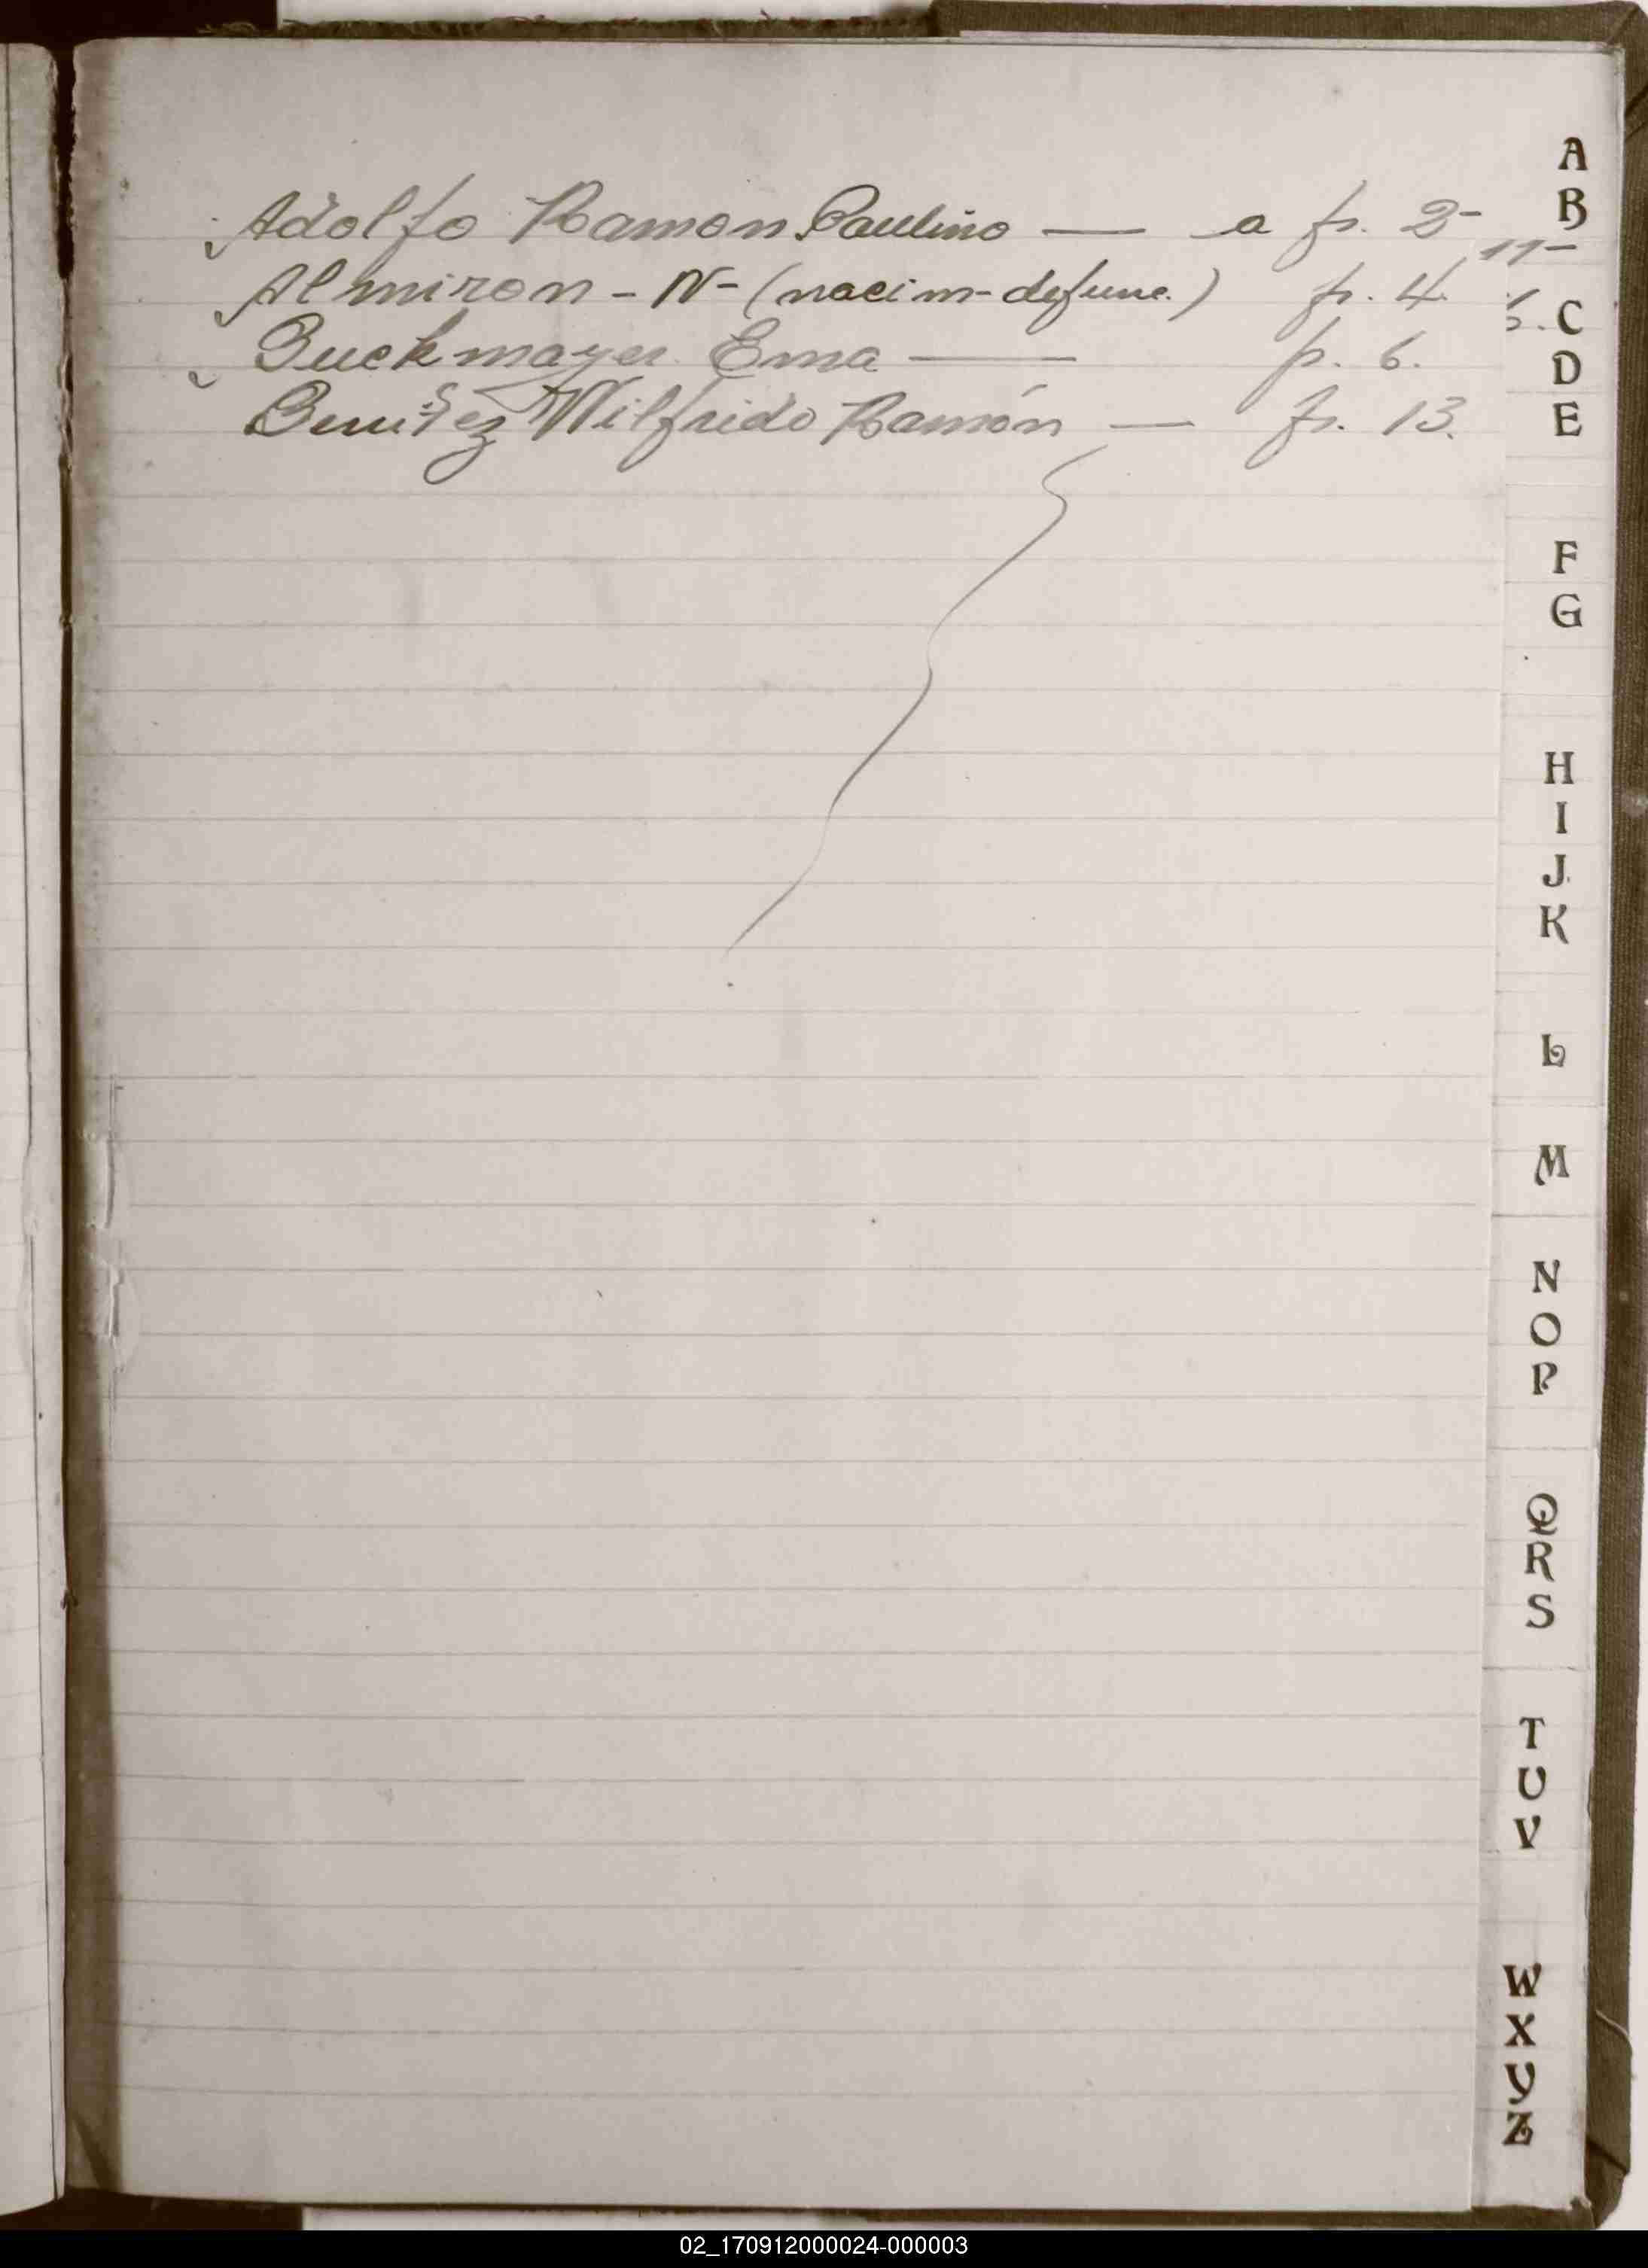 Adolfo Ramon Paulino — a p. 2-
11-
Almiron - N - (nacim- defunc.) p. 4.
Buckmayer Ema — p. 6.
Benitez Wilfrido Ramón — p. 13.
A
B
C
D
E
F
G
H
I
J
K
L
M
N
O
P
Q
R
S
T
U
V
W
X
Y
Z
02_170912000024-000003